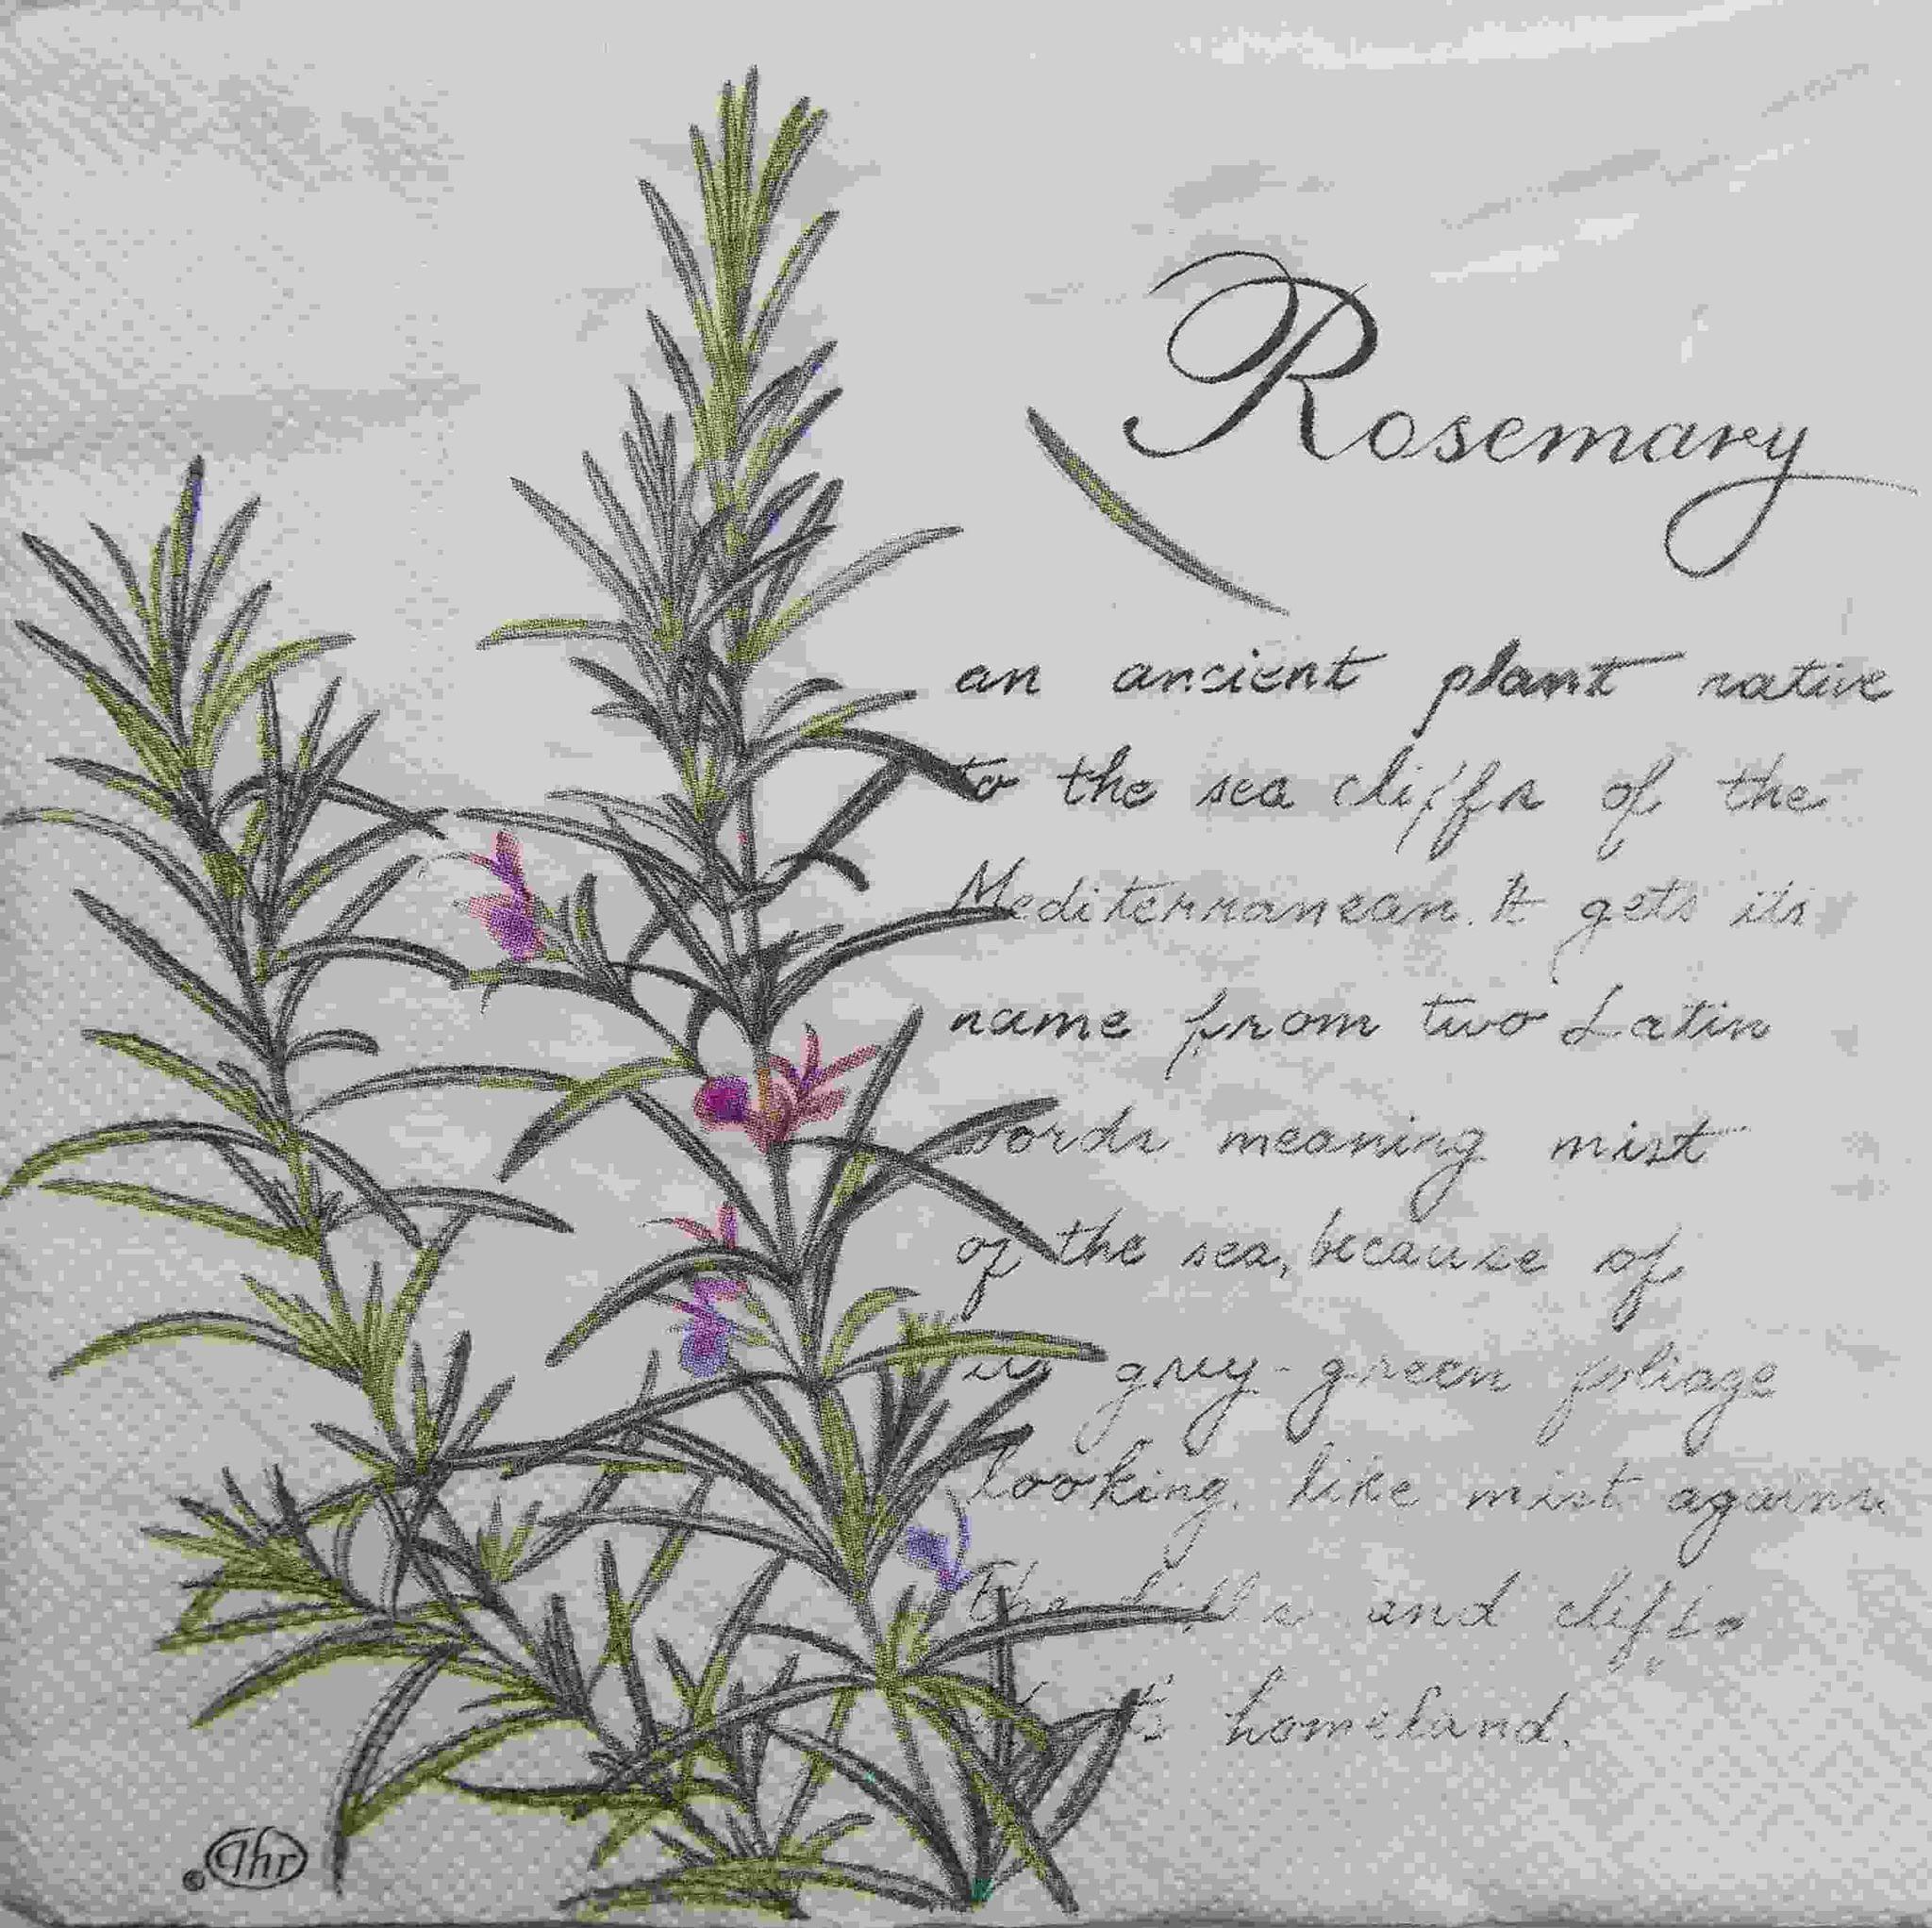 Rosemary
an ancient plant native
to the sea cliffs of the
Mediterranean. It gets its
name from two Latin
words meaning mist
of the sea, because of
its grey-green foliage
looking like mist against
The hills and cliffs
homeland.
© Ihr